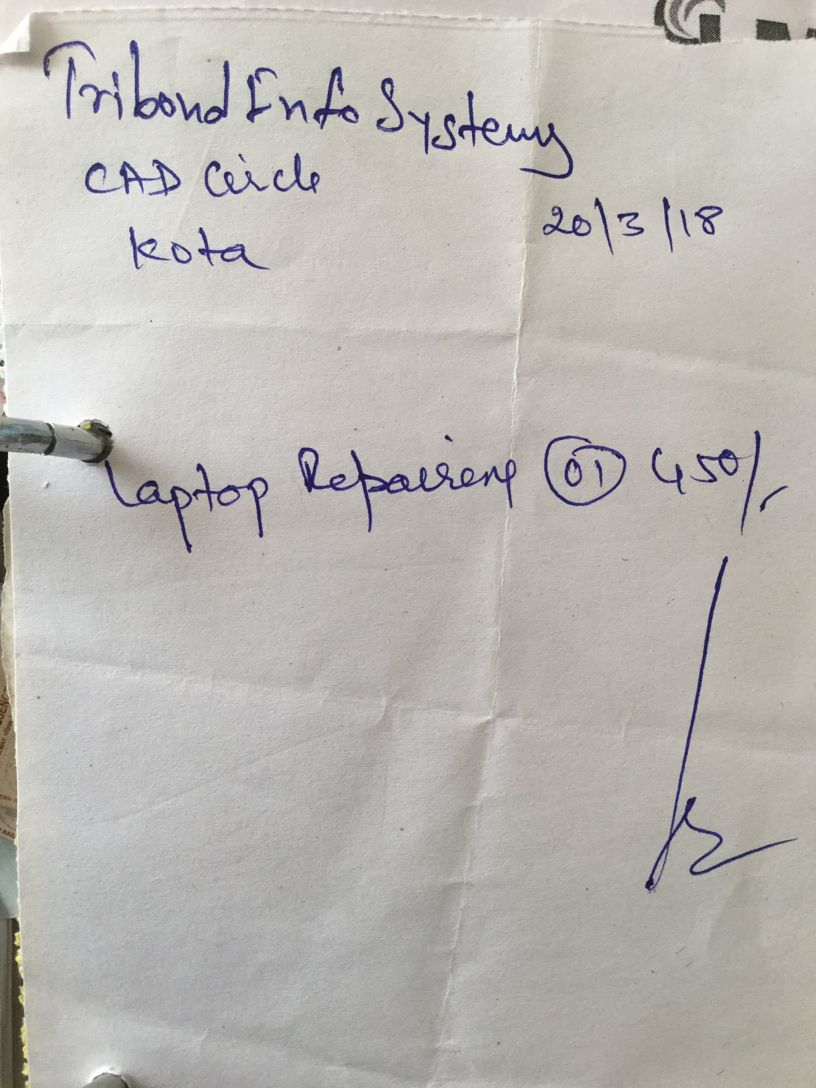 Tribond Info Systems
CAD Circle
Kota
20/3/18
Laptop Repairing 01 450/-